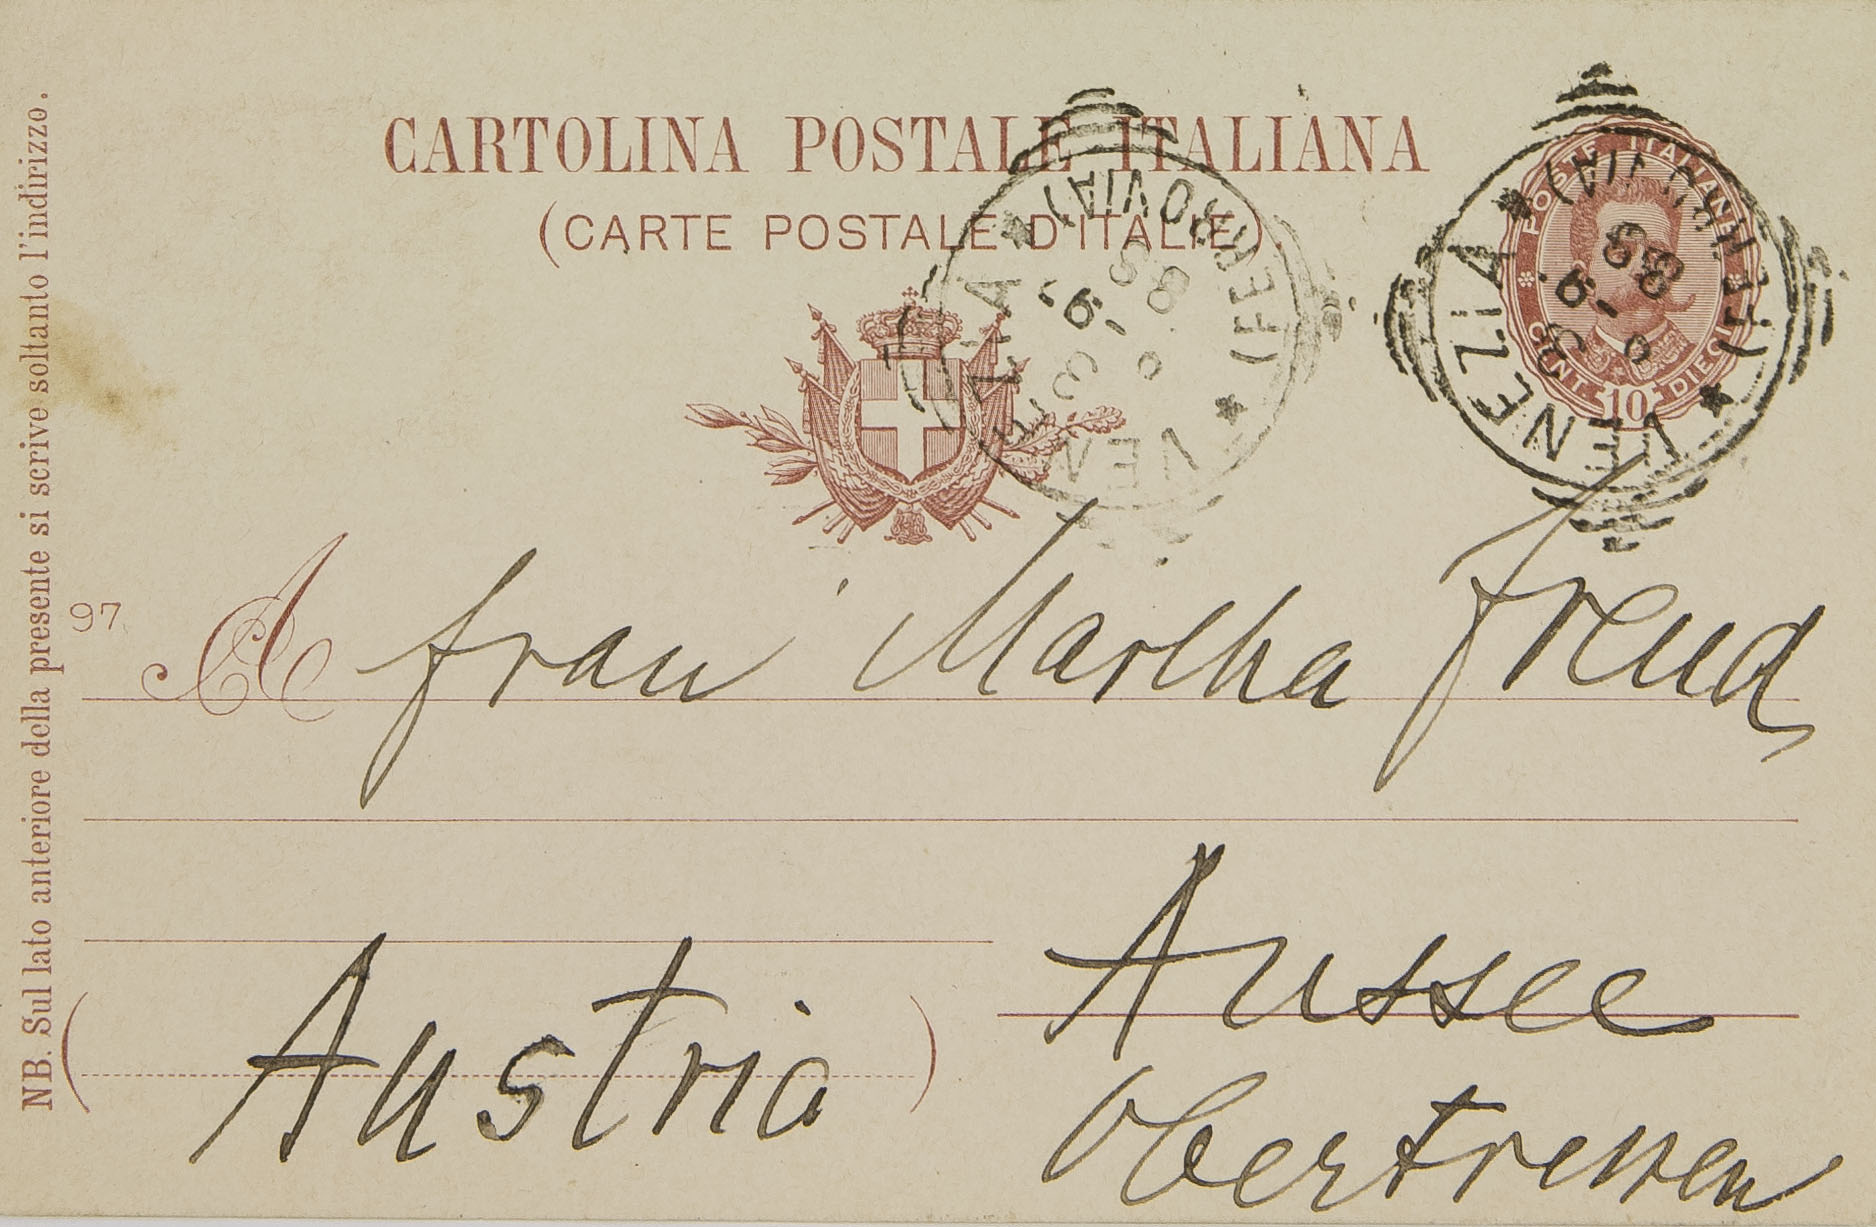 CARTOLINA POSTALE ITALIANA
(CARTE POSTALE D'ITALIE)
VENEZIA * (FERROVIA) *
POSTE ITALIANE
CENT. 10 DIECI
VENEZIA * (FERROVIA) *
NB. Sul lato anteriore della presente si scrive soltanto l'indirizzo.
97
A frau Martha Freud
Aussee
Austria
Obertressen